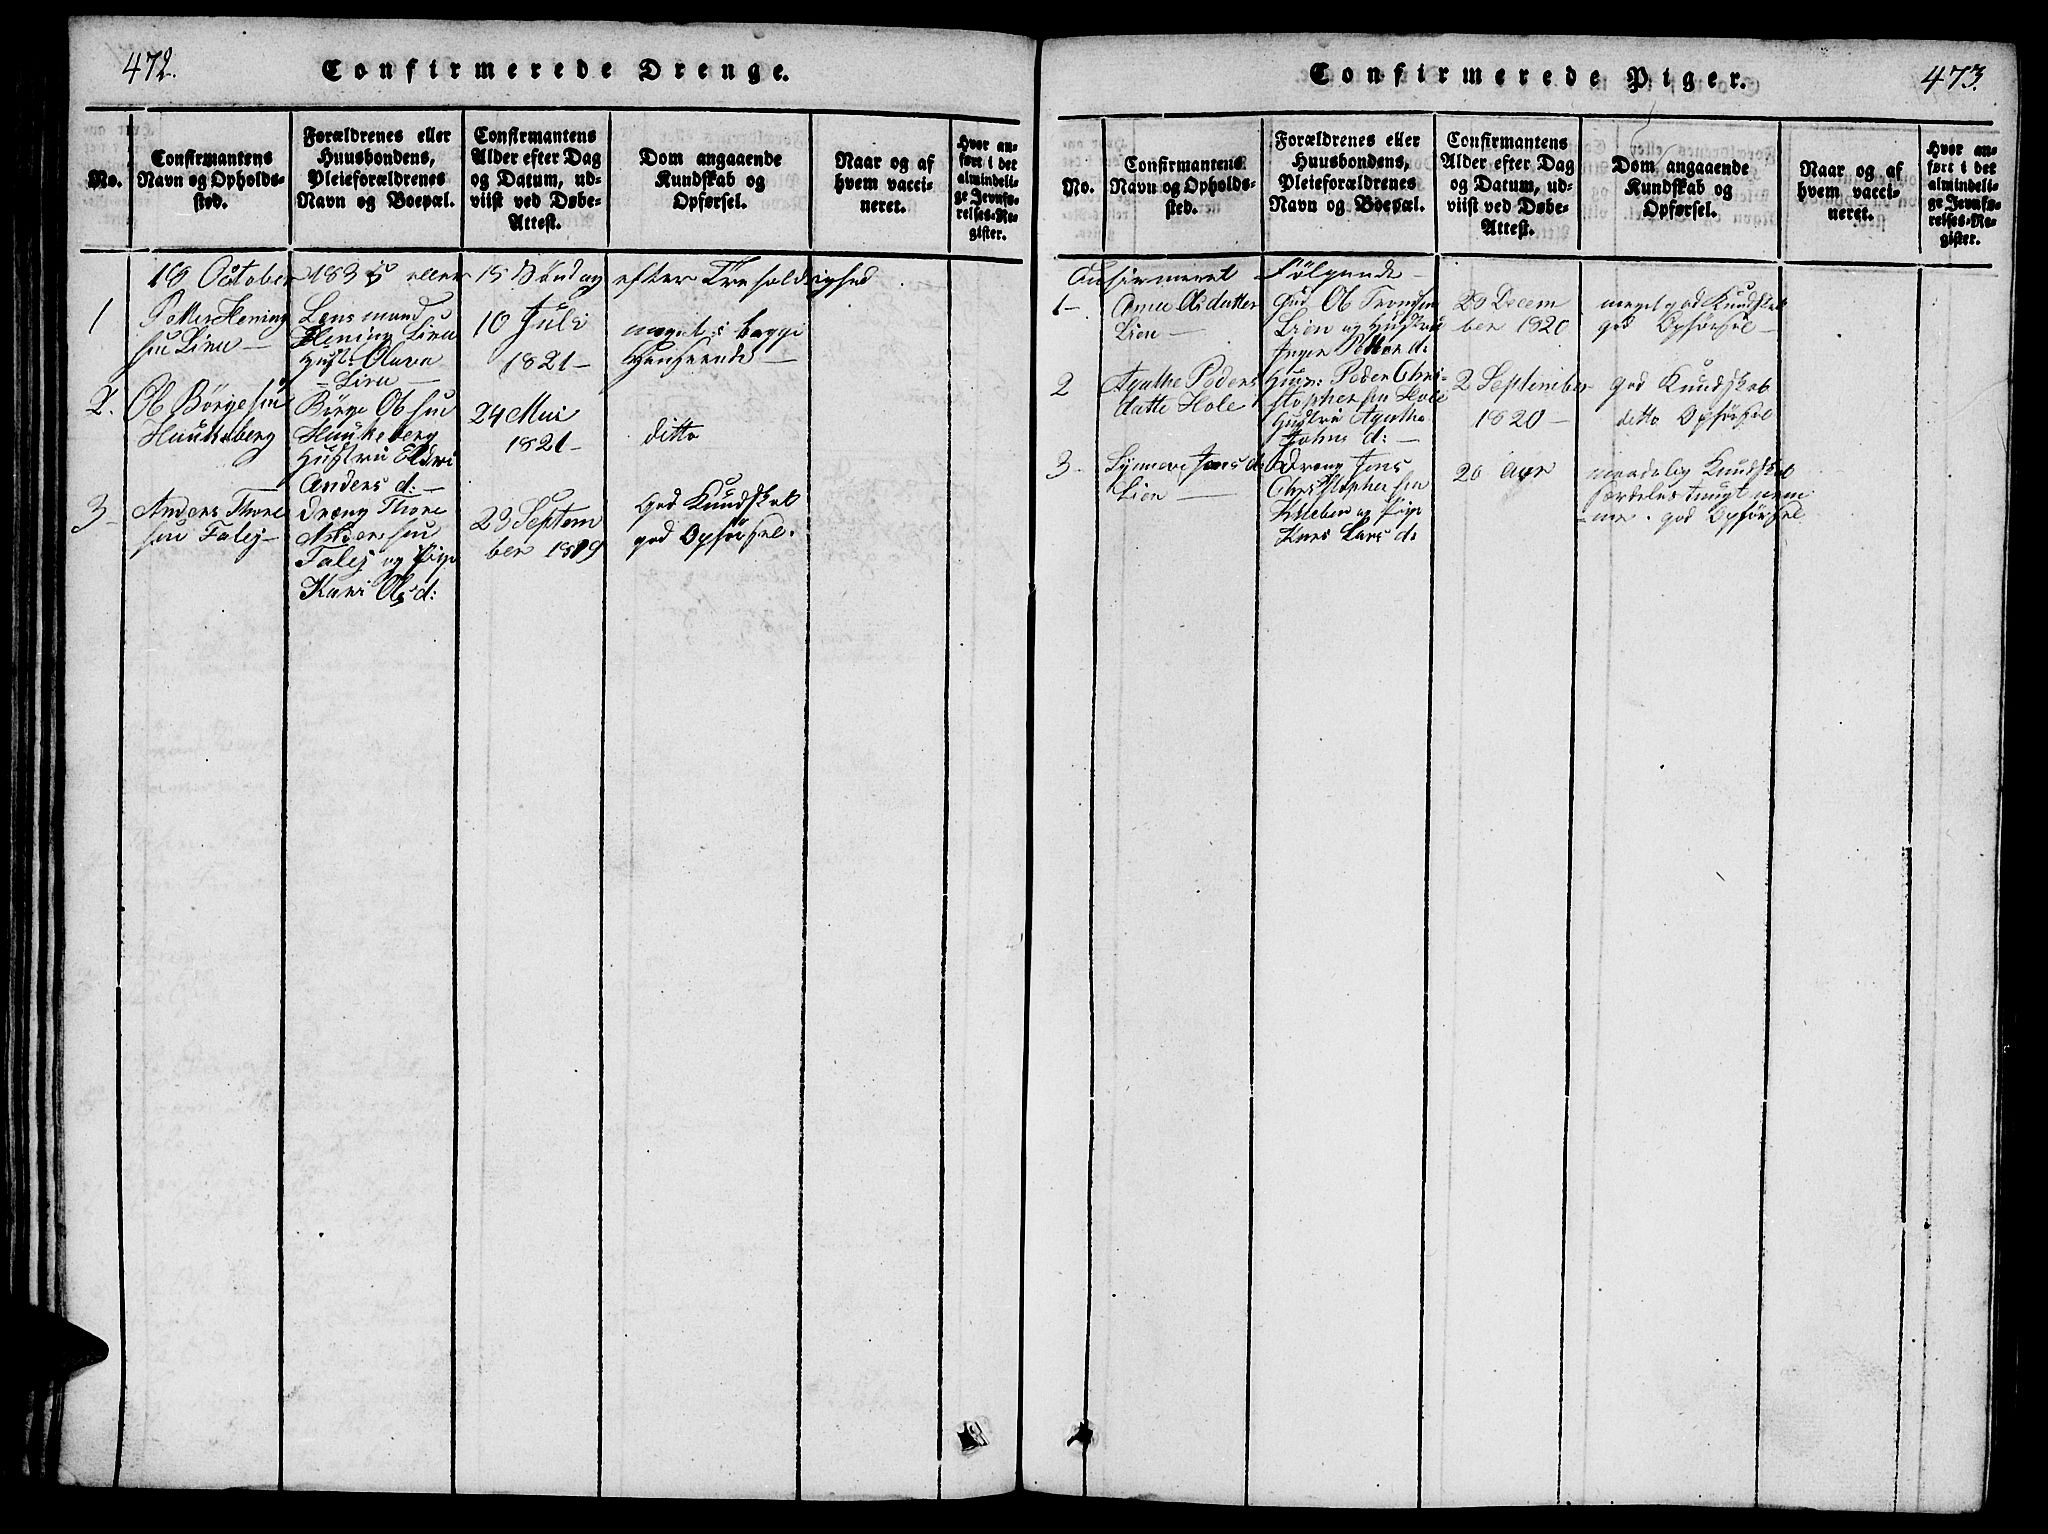 472.
Confirmerede Drenge.
No.
Confirmantens
Navn og Opholds-
sted.
Forældrenes eller
Huusbondens,
Pleieforældrenes
Navn og Boepæl.
Confirmantens
Alder efter Dag
og Datum, ud-
viist ved Døbe-
Attest.
Dom angaaende
Kundskab og
Opførsel.
Naar og af
hvem vacci-
neret.
Hvor an-
ført i det
almindeli-
ge Jevnfø-
relses-Re-
gister.
18 October 1835 eller 18 Søndag efter Trefoldighed
1
Petter Hening
sen Lien
Lensmand
Hening Lien
Hust: Olava
Lien
10 Juli
1821
meget i begge
Henseende
2.
Ole Børgesen
Haukeberg
Børge Olesen
Haukeberg
Hustru Eldri
Anders d:
24 Mai
1821
ditto
3
Anders Thore
sen Talej
Dreng Thore
Andersen
Talej og Pige
Kari Ols d:
29 Septem
ber 1819
God Kundskab
god Opførsel.
Confirmerede Piger.
473.
No.
Confirmantens
Navn og Opholds-
sted.
Forældrenes eller
Huusbondens,
Pleieforældrenes
Navn og Boepæl.
Confirmantens
Alder efter Dag
og Datum, ud-
viist ved Døbe-
Attest.
Dom angaaende
Kundskab og
Opførsel.
Naar og af
hvem vacci-
neret.
Hvor an-
ført i det
almindeli-
ge Jevnfø-
relses-Re-
gister.
Confirmeret Følgende
1
Ane Olsdatter
Lien
Ole Tronsen
Lien og Hustru
Inger Petter d:
Decem
ber 1820
meget god Kundskab
god Opførsel
2
Agathe Peders
datte Hole
Huus: Peder Chri-
stophersen Hole
Hustru Agathe
Johns d:
2 September
1820
god Kundskab
ditto Opførsel
3
Synneve Jens d:
Lien
Dreng Jens
Christophersen
og Pige
Lars d:
20 Aar
maadelig Kundskab
særdeles tungt nem
me. god Opførsel